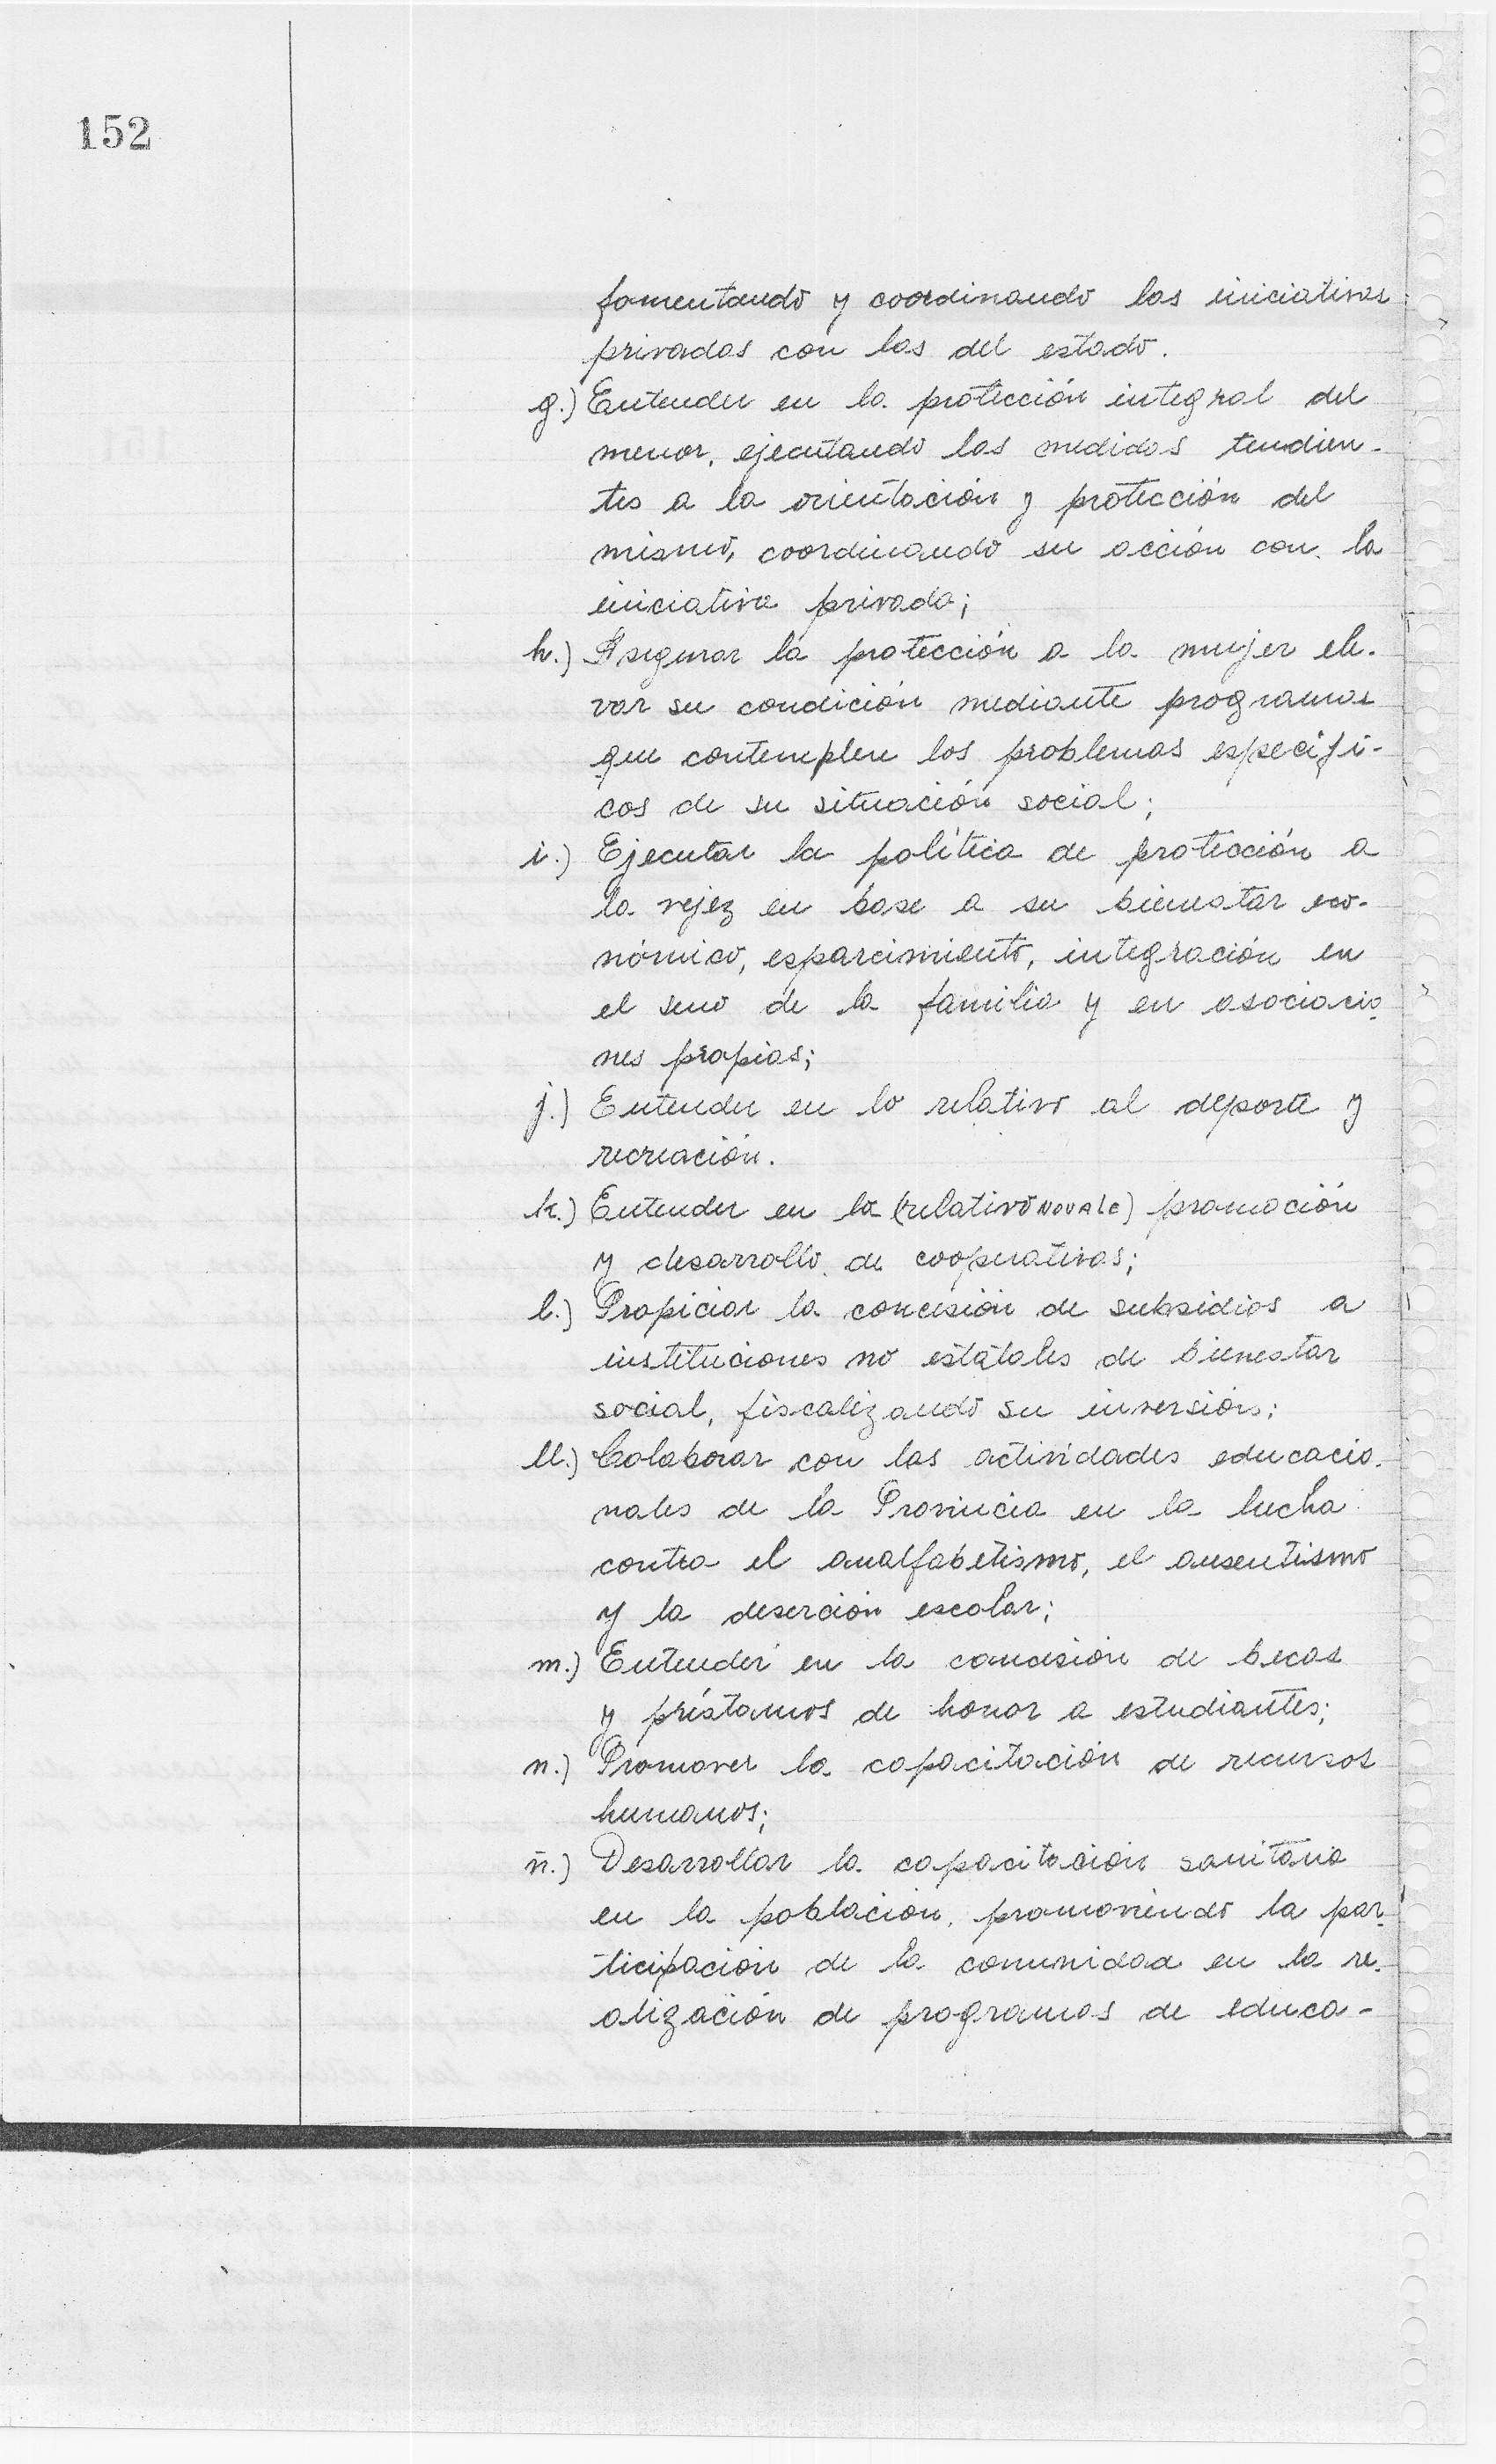 152
fomentando y coordinando las iniciativas
privadas con las del estado.
g.) Entender en la protección integral del
menor, ejecutando las medidas tendien-
tes a la orientación y protección del
mismo, coordinando su acción con la
iniciativa privada;
h.) Asegurar la protección a la mujer ele-
var su condición mediante programas
que contemplen los problemas especifi-
cos de su situación social;
i.) Ejecutar la política de protección a
la vejez en base a su bienestar eco-
nómico, esparcimiento, integración en
el seno de la familia y en asociacio-
nes propias;
j.) Entender en lo relativo al deporte y
recreación.
k.) Entender en la (relativo NO VALE) promoción
y desarrollo de cooperativas;
l.) Propiciar la concesión de subsidios a
instituciones no estatales de bienestar
social, fiscalizando su inversión;
ll.) Colaborar con las actividades educacio-
nales de la Provincia en la lucha
contra el analfabetismo, el ausentismo
y la deserción escolar;
m.) Entender en la concesión de becas
y préstamos de honor a estudiantes;
n.) Promover la capacitación de recursos
humanos;
ñ.) Desarrollar la capacitación sanitaria
en la población, promoviendo la par-
ticipación de la comunidad en la re-
alización de programas de educa-